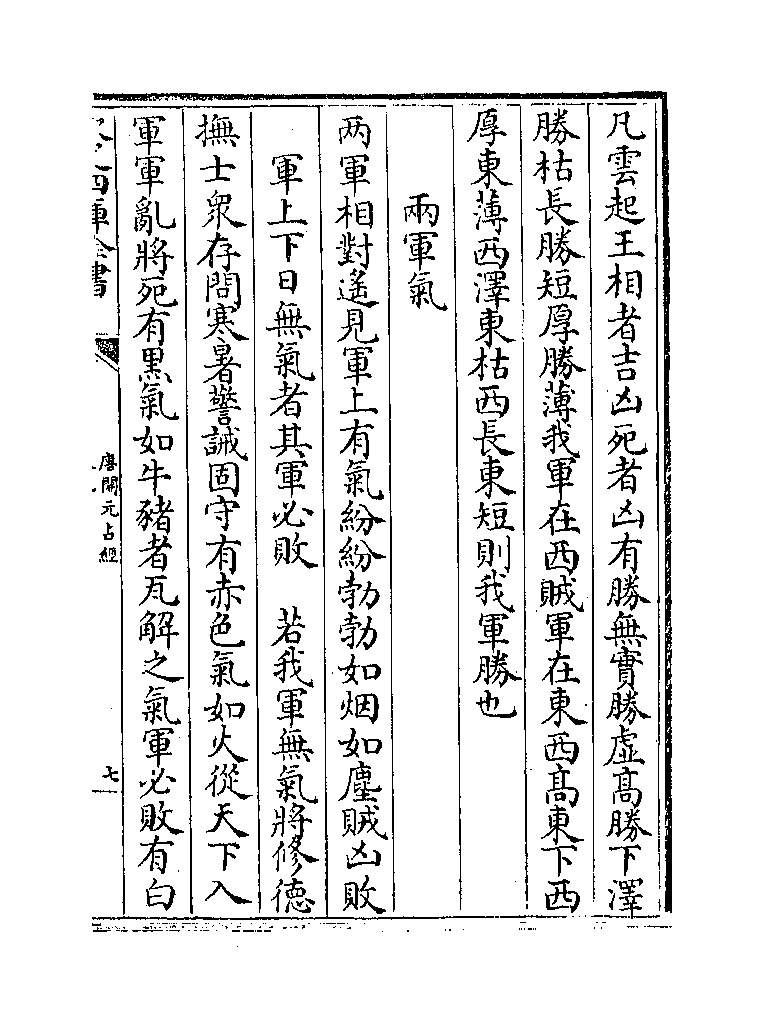 凡雲起王相者吉凶死者凶有勝無實勝虛高勝下澤
勝枯長勝短厚勝薄我軍在西賊軍在東西高東下西
厚東薄西澤東枯西長東短則我軍勝也
兩軍氣
两軍相對遙見軍上有氣紛紛勃勃如烟如塵賊凶敗
軍上下日無氣者其軍必敗　若我軍無氣將修德
撫士衆存問寒暑警誡固守有赤色氣如火從天下入
軍軍亂將死有黒氣如牛豬者瓦解之氣軍必敗有白
四庫全書
唐開元占經
七